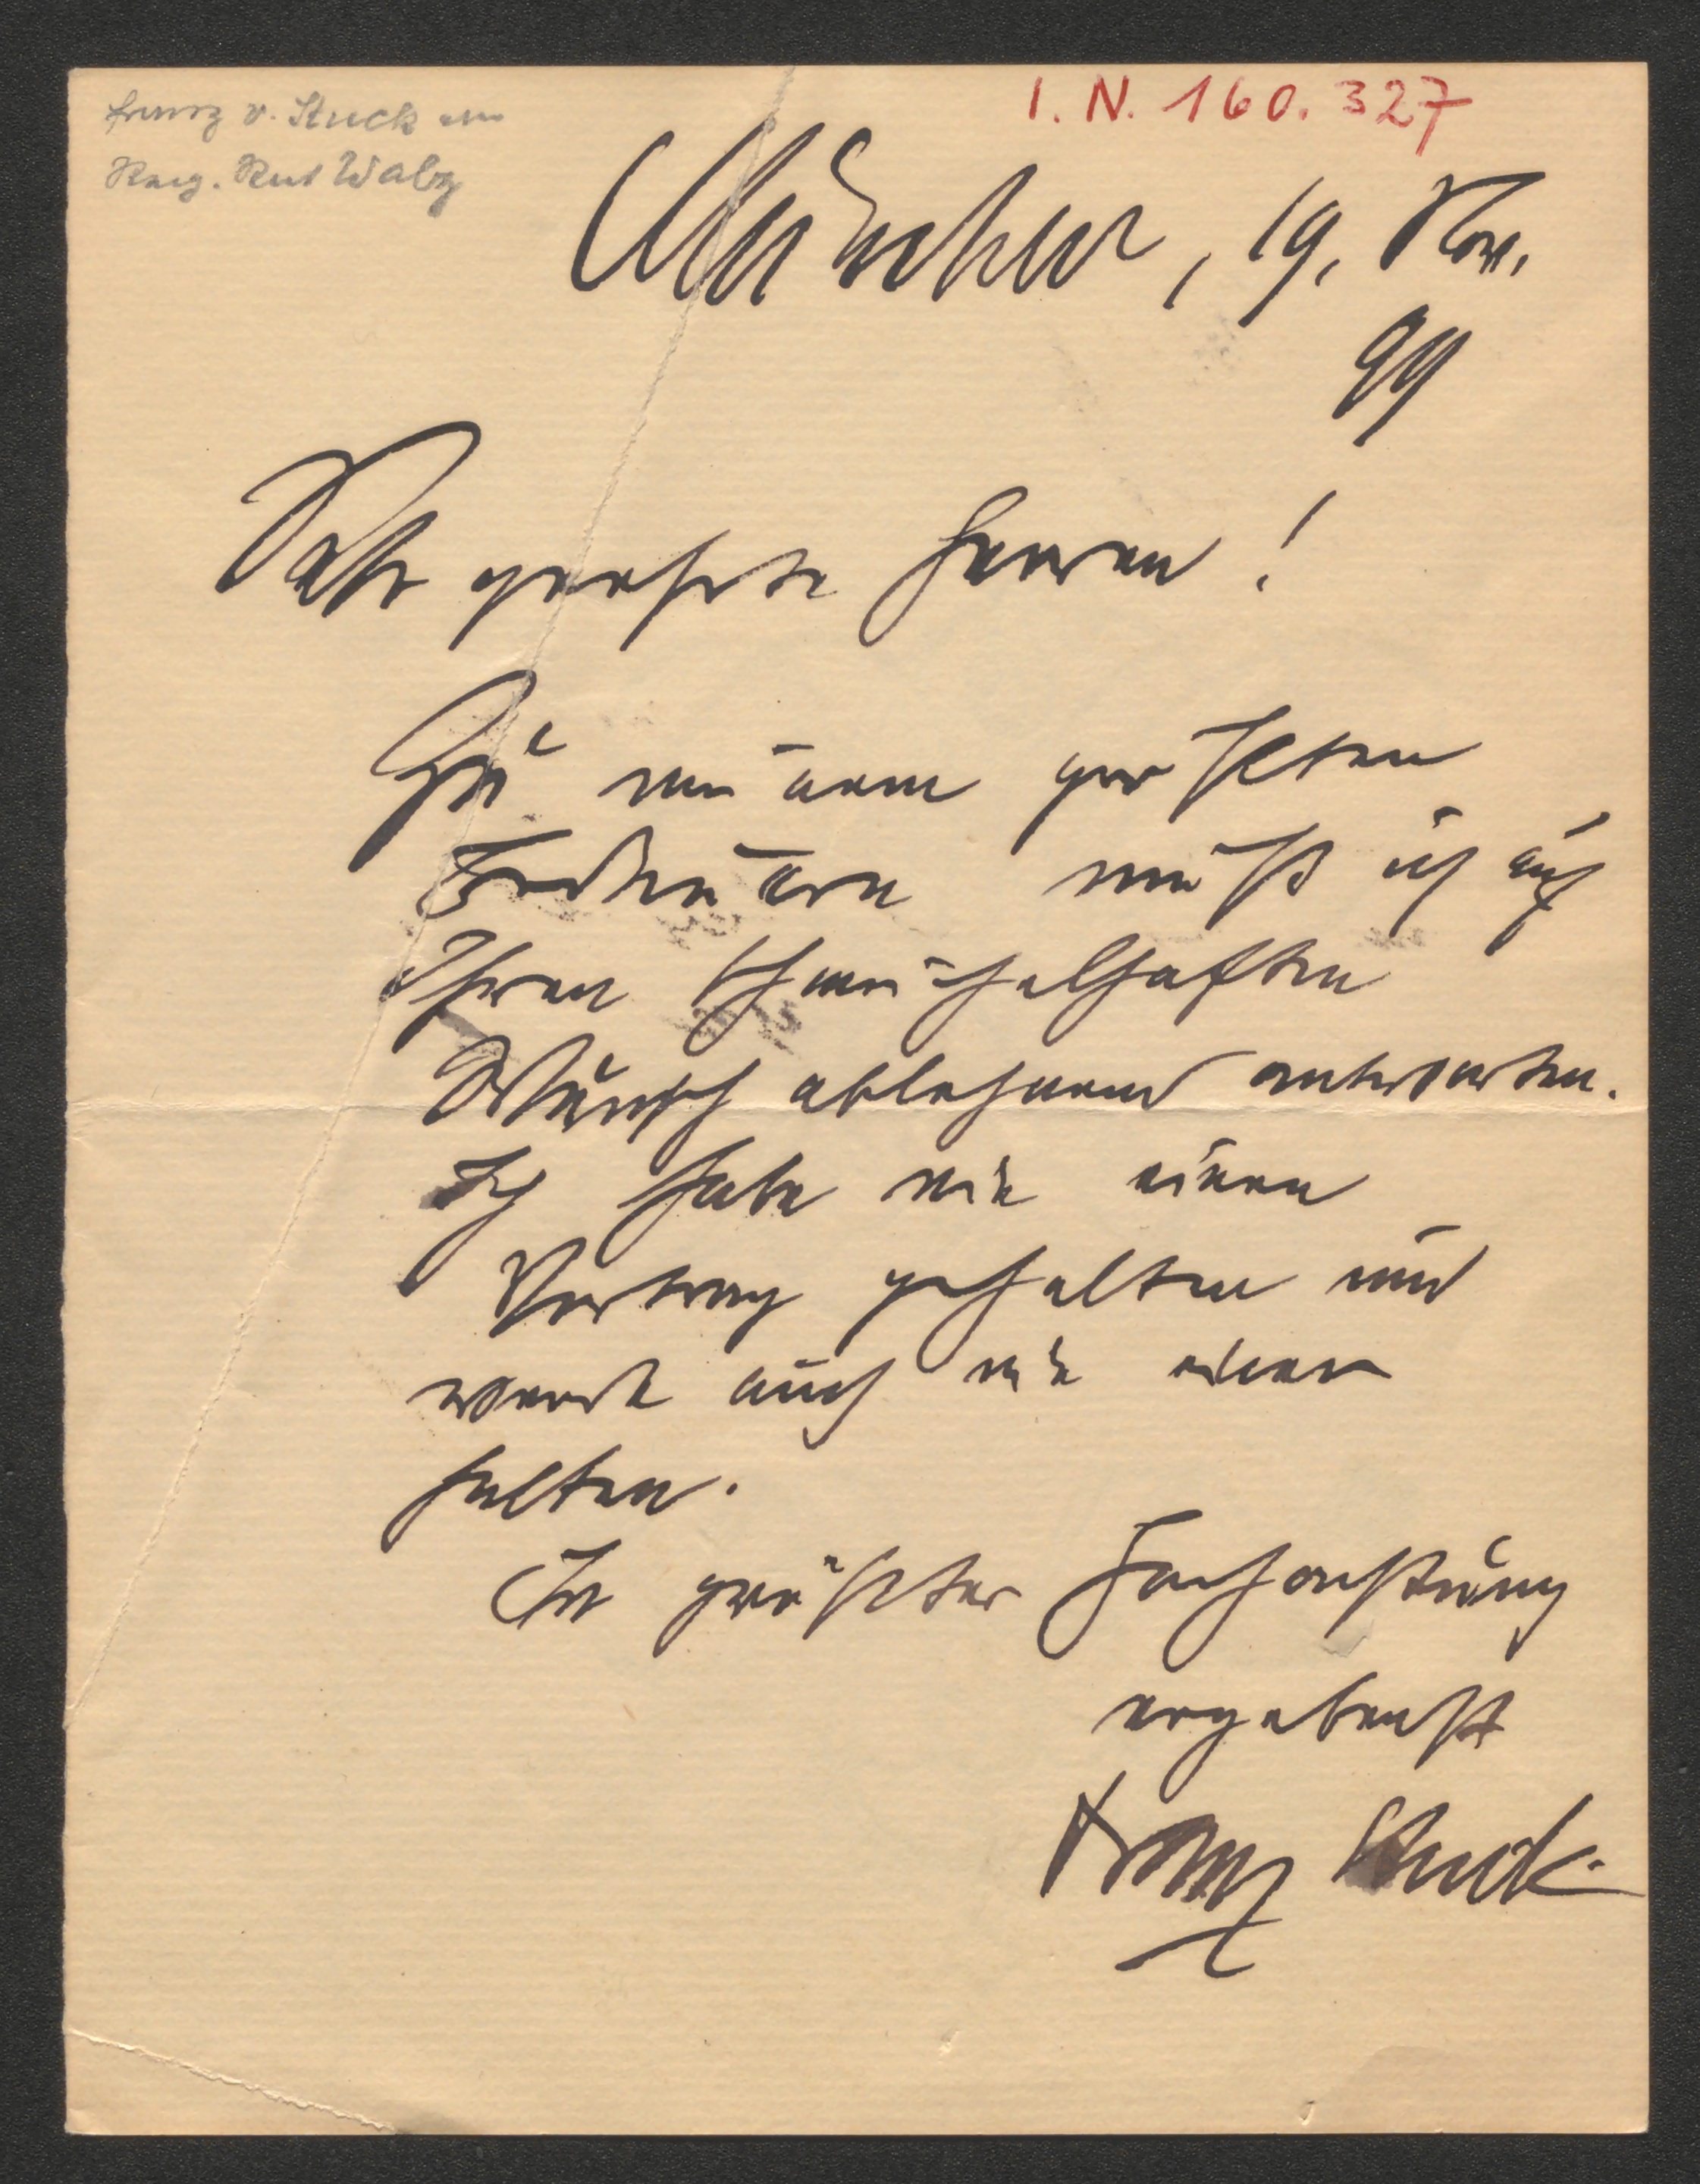 Franz v. Stuck an
I. N. 160.327
Walz
München, 19. Nov.
99
Sehr geehrte Herren!
Zu meinem größten
Bedauern muß ich auf
Ihren schmeichelhaften
Wunsch ablehnend antworten.
Ich habe nie einen
Vortrag gehalten und
werde auch nie einen
halten.
In größter Hochachtung
ergebenst
Franz Stuck.